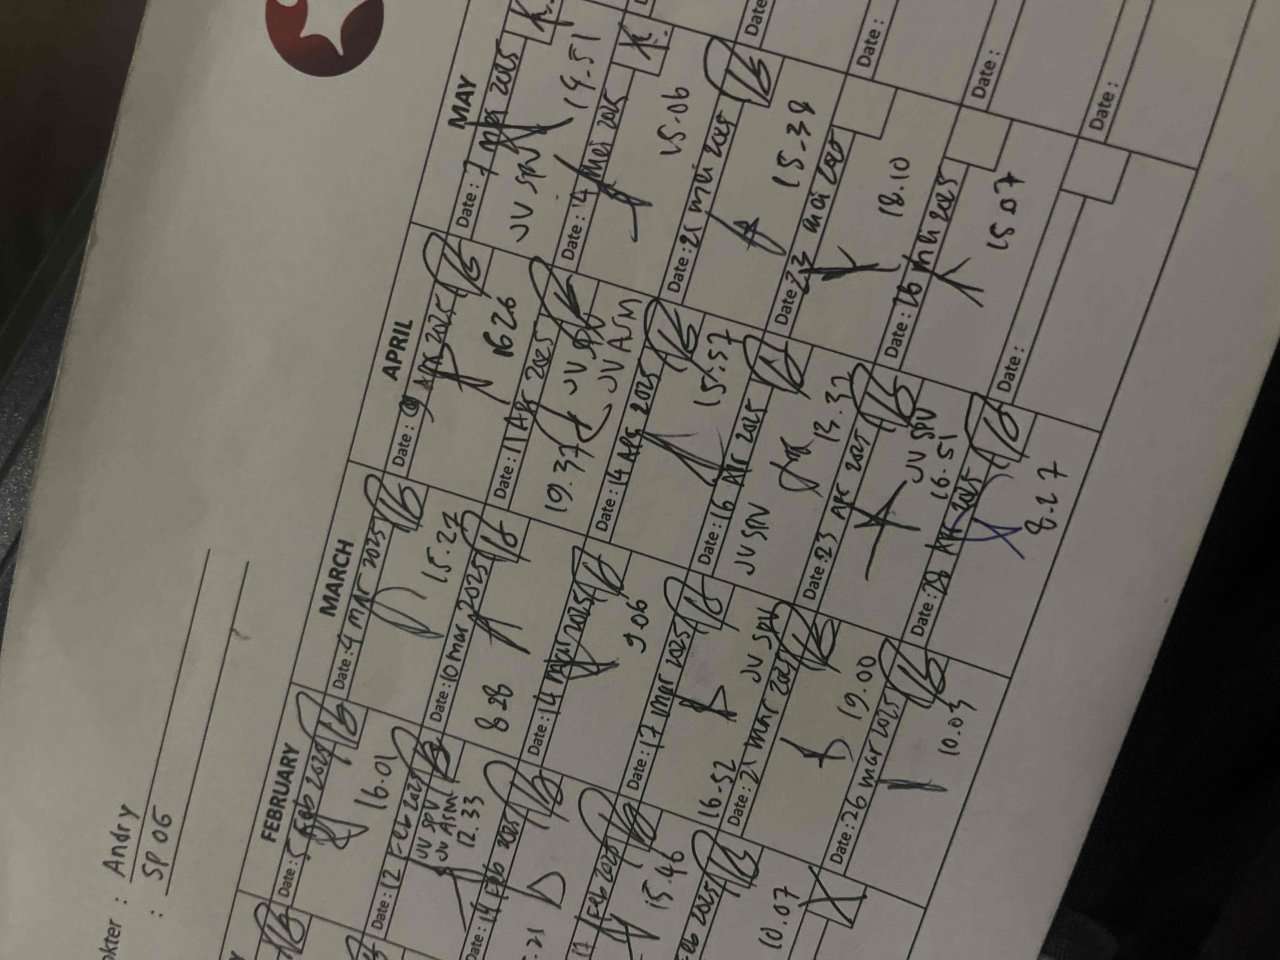 akter : Andry
: SP 06
FEBRUARY
Date: 5 Feb 2025
16.01
Date: 12 Feb 2025
JV SPV
JV ASM
12.33
Date: 14 Feb 2025
.21
17 Feb 2025
15.46
Feb 2025
10.07
MARCH
Date: 4 mar 2025
15.27
Date: 10 mar 2025
8.28
Date: 14 mar 2025
9.06
Date: 17 mar 2025
JV SPV
16.52
Date: 21 mar 2025
19.00
Date: 26 mar 2025
10.03
APRIL
Date: 9 Apr 2025
16.26
Date: 11 Apr 2025
JV SPV
JV ASM
19.37
Date: 14 Apr 2025
15.57
Date: 16 Apr 2025
JV SPV
13.32
Date: 23 Apr 2025
JV SPV
16.51
Date: 28 Apr 2025
8.27
MAY
Date: 7 mei 2025
JV SPV
19.51
Date: 14 mei 2025
15.06
Date: 21 mei 2025
15.38
Date: 23 mei 2025
18.10
Date: 26 mei 2025
15.07
Date:
Date:
Date:
Date:
Date: